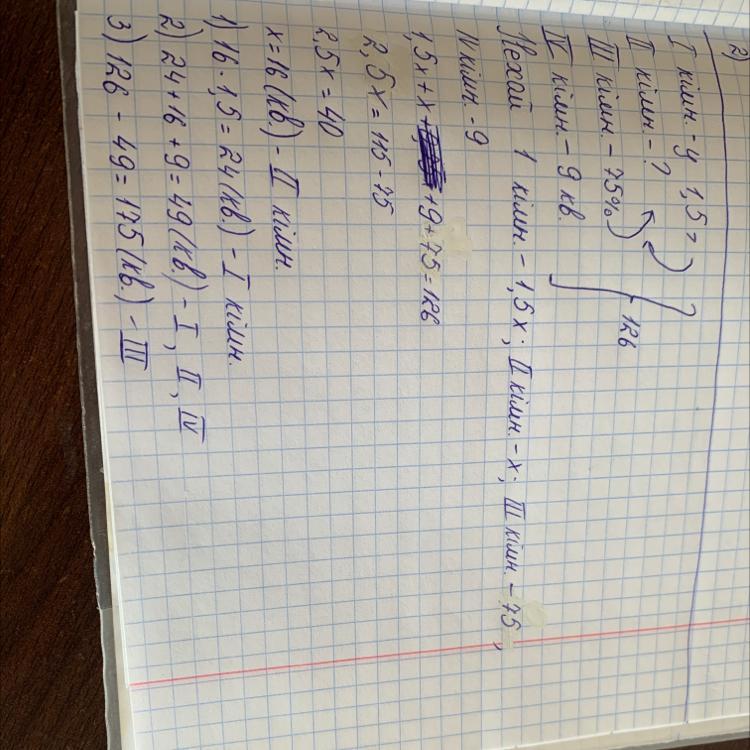 2)
I кімн. - у 1,5 >
II кімн. - ?
III кімн. - 75%
IV кімн. - 9 кв.
126
Нехай 1 кімн. - 1,5x; II кімн. - x; III кімн. - 75,
IV кімн. - 9
1,5x + x + 9 + 75 = 126
2,5x = 115 - 75
2,5x = 40
x = 16 (кв) - II кімн.
1) 16 · 1,5 = 24 (кв) - I кімн.
2) 24 + 16 + 9 = 49 (кв.) - I, II, IV
3) 126 - 49 = 175 (кв.) - III